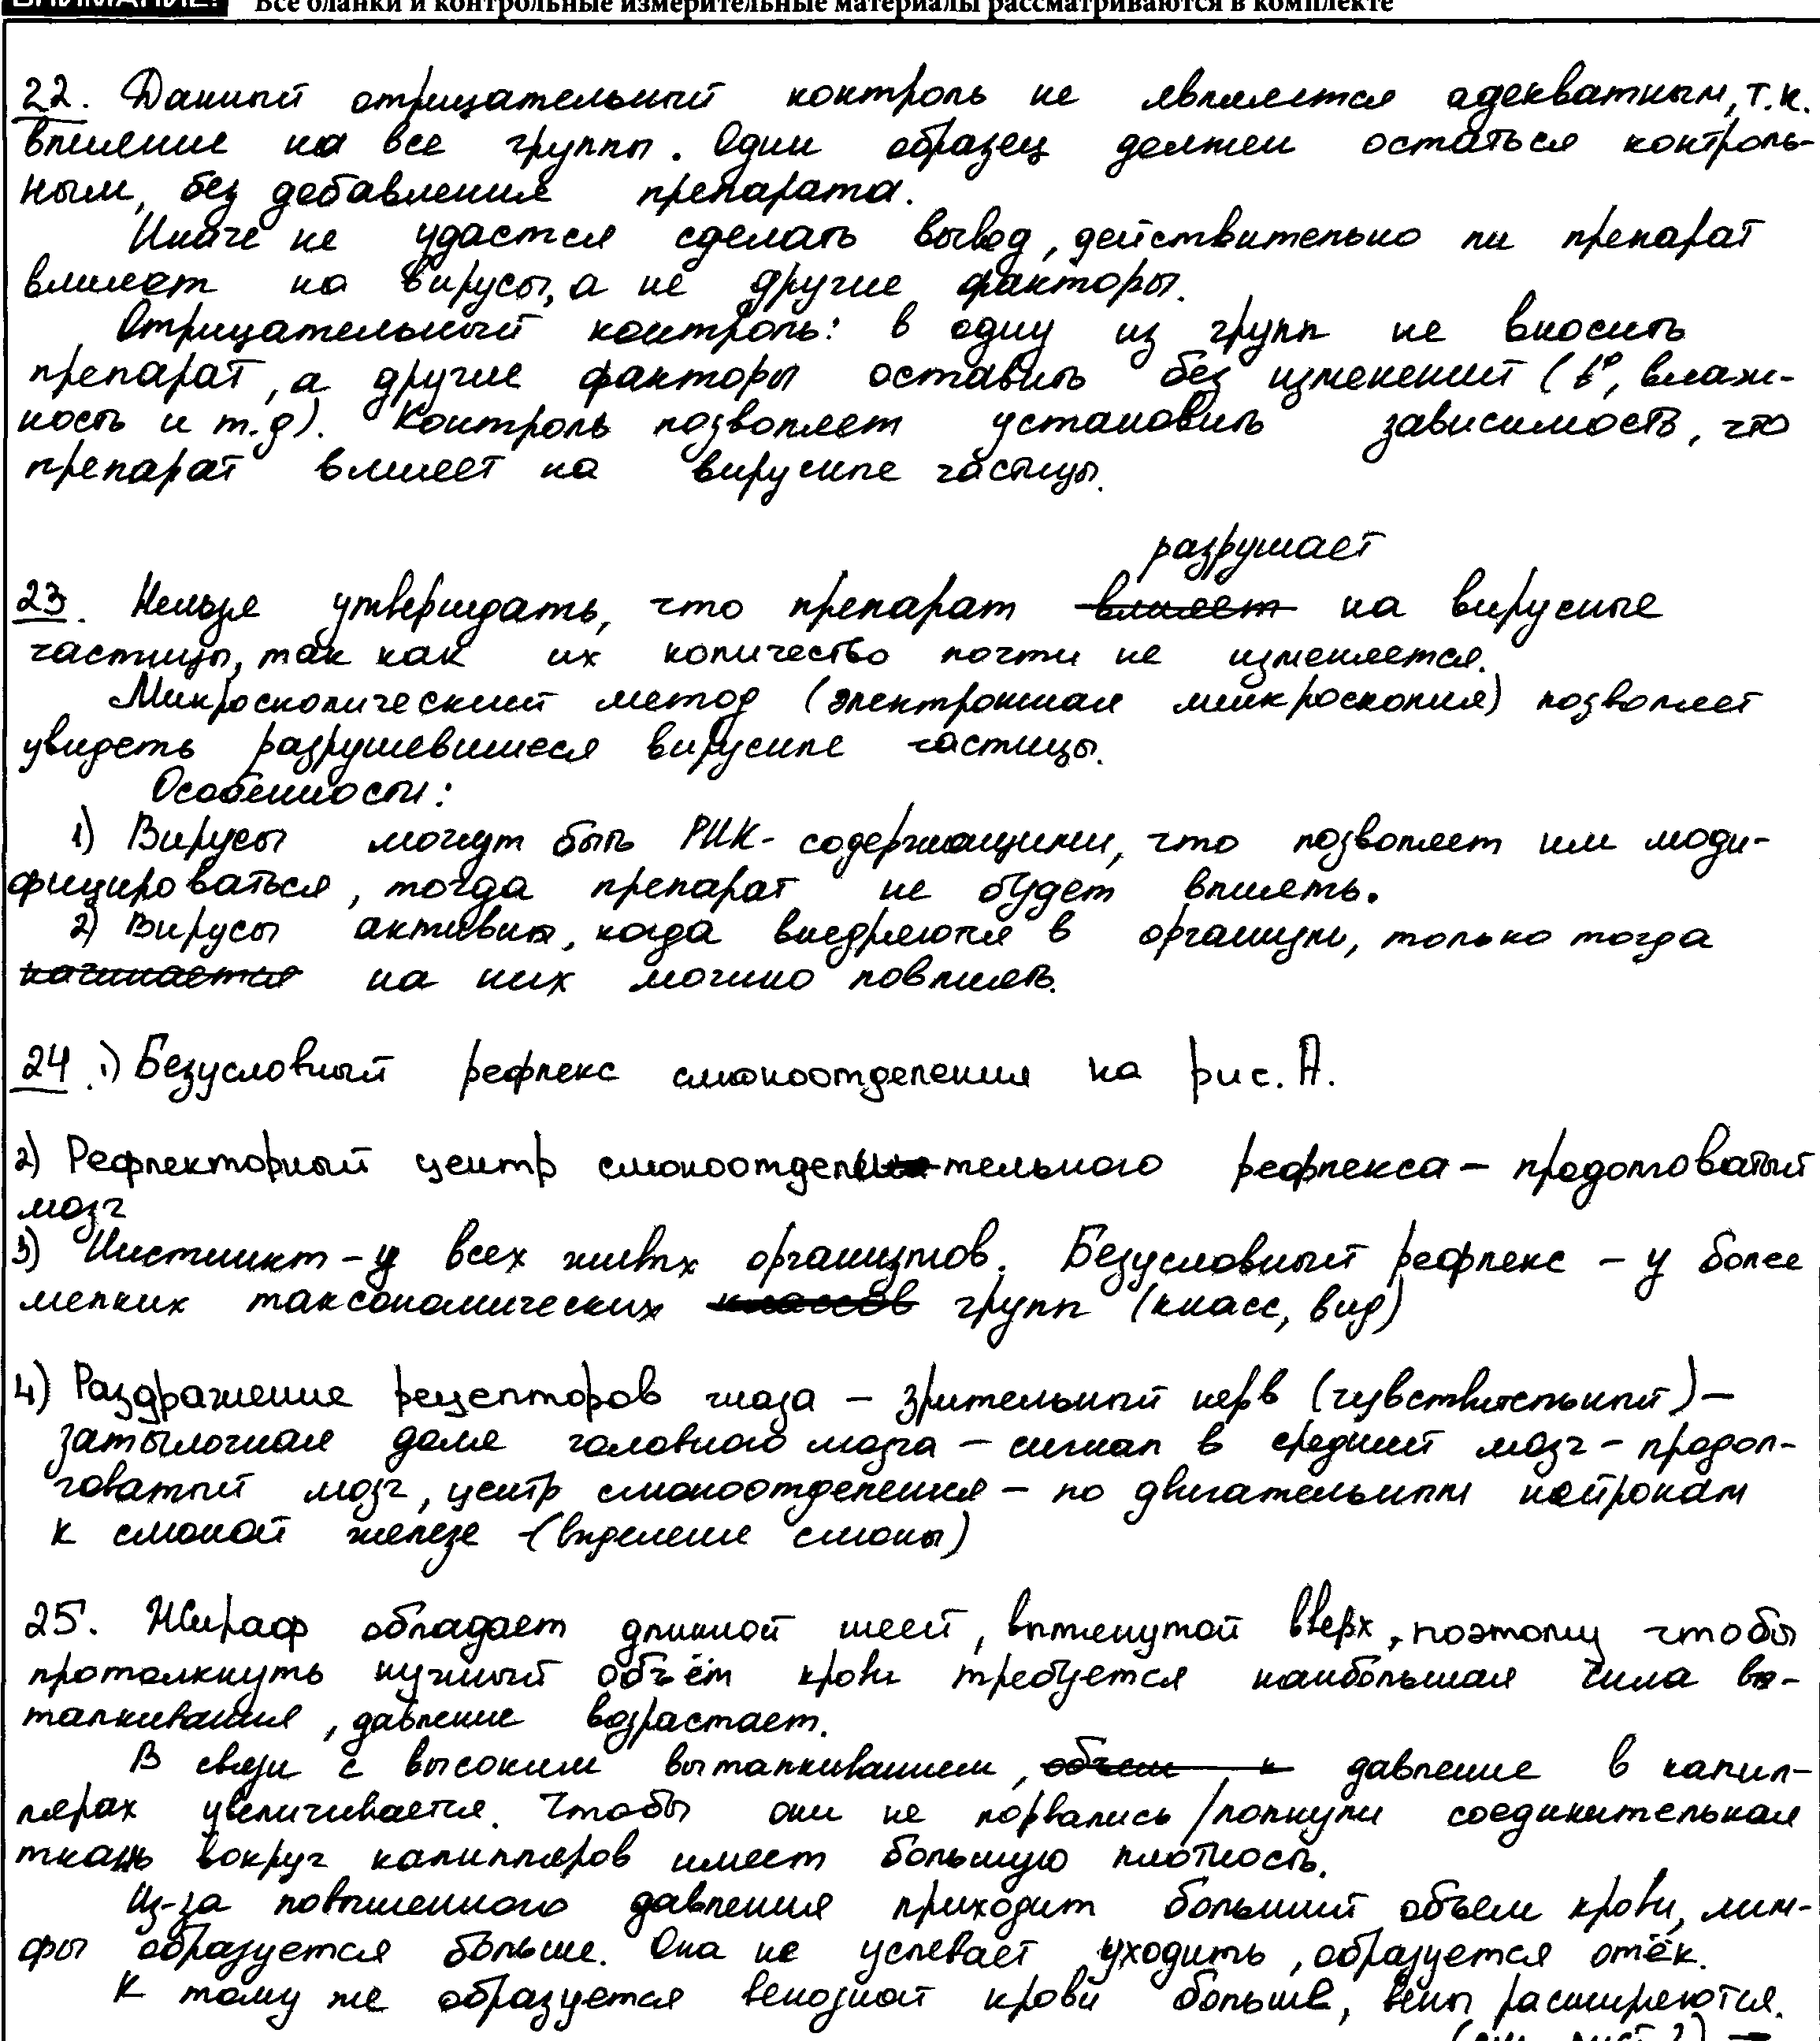 ВНИМАНИЕ! Все бланки и контрольные измерительные материалы рассматриваются в комплекте
22. Данный отрицательный контроль не является адекватным, т.к.
влияние на все группы. Один образец должен остаться контроль-
ным, без добавления препарата.
Иначе не удастся сделать вывод, действительно ли препарат
влияет на вирусы, а не другие факторы.
Отрицательный контроль: в одну из групп не вносить
препарат, а другие факторы оставить без изменений (t°, влаж-
ность и т.д). Контроль позволяет установить зависимость, что
препарат влияет на вирусные частицы.
разрушает
23. Нельзя утверждать, что препарат влияет на вирусные
частицы, так как их количество почти не изменяется.
Микроскопический метод (электронная микроскопия) позволяет
увидеть разрушевшиеся вирусные частицы.
Особенности:
1) Вирусы могут быть РНК-содержащими, что позволяет им моди-
фицироваться, тогда препарат не будет влиять.
2) Вирусы активны, когда внедряются в организм, только тогда
начинается на них можно повлиять.
24. 1) Безусловный рефлекс слюноотделения на рис. А.
2) Рефлекторный центр слюноотделительного рефлекса – продолговатый
мозг
3) Инстинкт – у всех живых организмов. Безусловный рефлекс – у более
мелких таксономических классов групп (класс, вид)
4) Раздражение рецепторов глаза – зрительный нерв (чувствительный) –
затылочная доля головного мозга – сигнал в средний мозг – продол-
говатый мозг, центр слюноотделения – по двигательным нейронам
к слюной железе – (выделение слюны)
25. Жираф обладает длинной шеей, вытянутой вверх, поэтому чтобы
протолкнуть нужный объём крови требуется наибольшая сила вы-
талкивания, давление возрастает.
В связи с высоким выталкиванием, объем к давление в капил-
лярах увеличивается. Чтобы они не порвались/лопнули соединительная
ткань вокруг капилляров имеет большую плотность.
Из-за повышенного давления приходит больший объем крови, лим-
фы образуется больше. Она не успевает уходить, образуется отёк.
К тому же образуется венозной крови больше, вены расширяются.
(см. лист 2) →